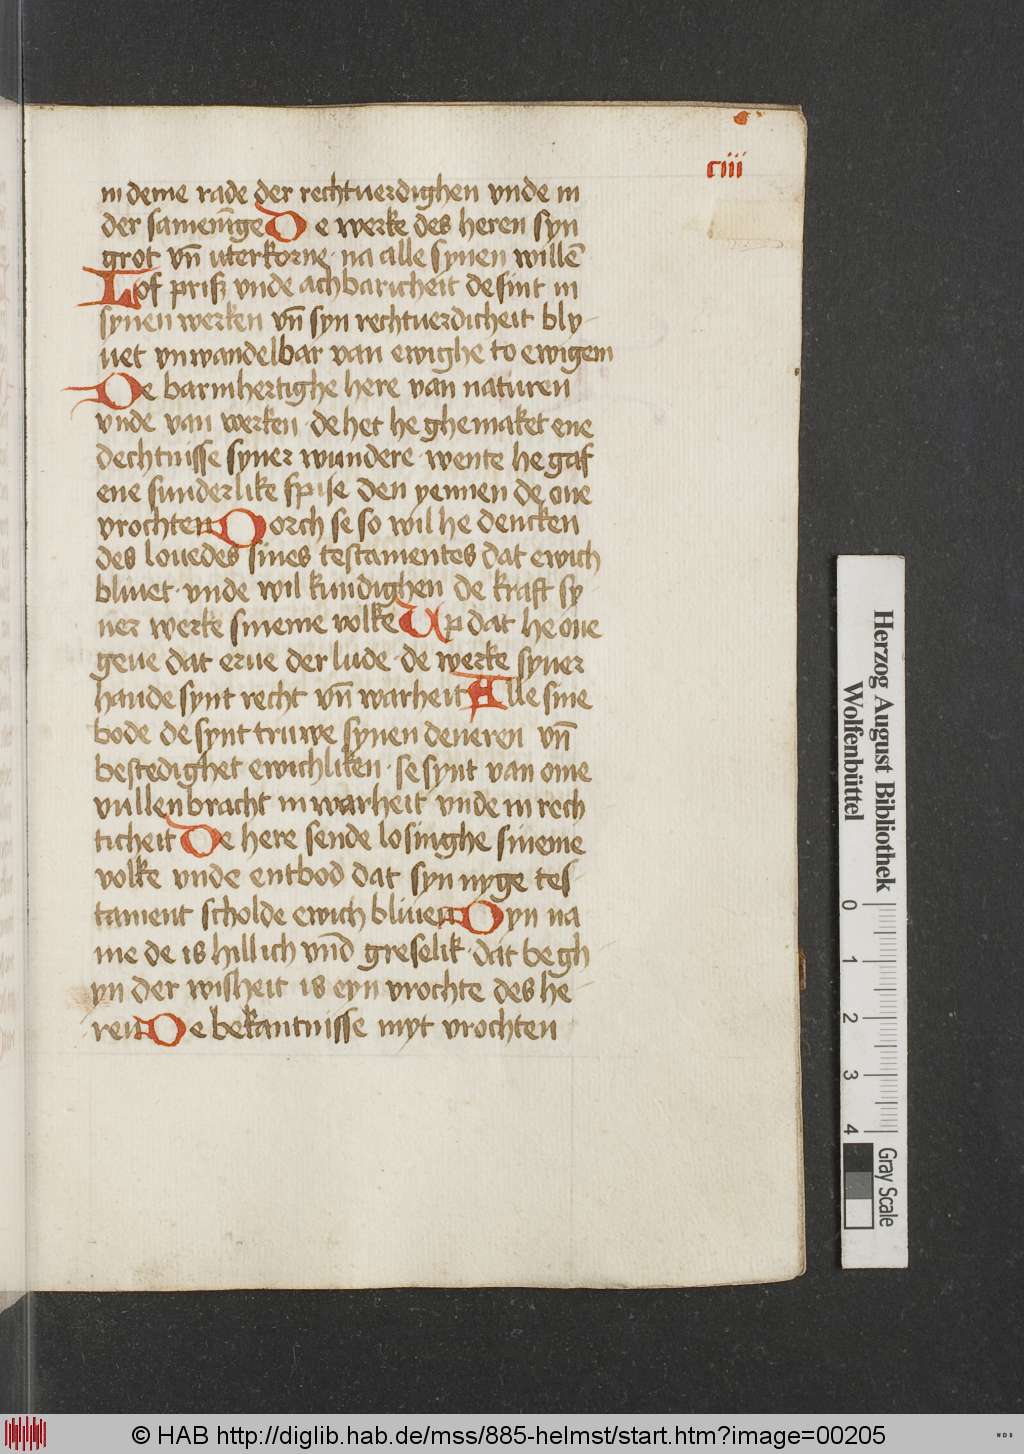 ciii
in deme rade der rechtuerdighen vnde in
der samenīge De werke des heren syn
grot vn̄ uterkorne · na alle synen willē
Lof prisz vnde achbaricheit de sint in
synen werken vn̄ syn rechtuerdicheit bly-
uet vnwandelbar van ewighe to ewigem
De barmhertighe here van naturen
vnde van werken · de het he ghemaket ene
dechtnisse syner wundere · wente he gaf
ene sunderlike spise den yennen de one
vrochten Dorch se so wil he dencken
des louedes sines testamentes dat ewich
bliuet · vnde wil kundighen de kraft sy-
ner werke sineme volke Up dat he one
geue dat erue der lude · de werke syner
hande synt recht vn̄ warheit Alle sine
bode de synt truwe synen deneren vn̄
bestedighet ewichliken · se synt van ome
vullenbracht in warheit vnde in rech
ticheit De here sende losinghe sineme
volke vnde entbod dat syn nyge tes-
tament scholde ewich bliuen Syn na
me de is hillich vn̄d greselik · dat begh
yn der wisheit is eyn vrochte des he-
ren De bekantnisse myt vrochten
Herzog August Bibliothek
Wolfenbüttel
0 1 2 3 4
Gray Scale
© HAB http://diglib.hab.de/mss/885-helmst/start.htm?image=00205